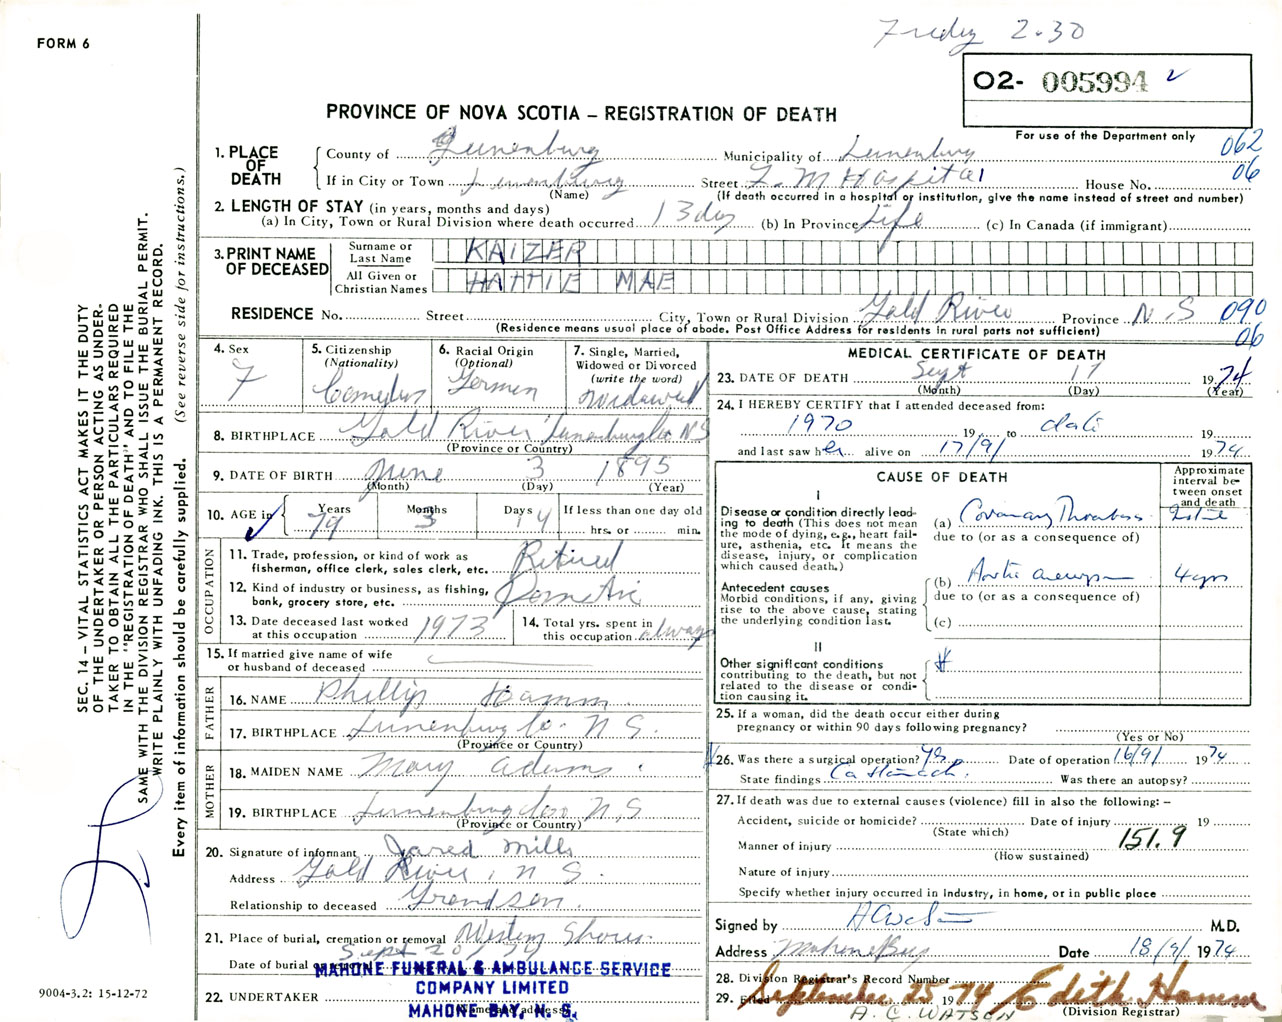 Friday 2.30
FORM 6
O2- 005994
PROVINCE OF NOVA SCOTIA – REGISTRATION OF DEATH
For use of the Department only
062
06
1. PLACE OF DEATH
County of Lunenburg Municipality of Lunenburg
If in City or Town Lunenburg Street F. M Hospital House No.
(Name) (If death occurred in a hospital or institution, give the name instead of street and number)
2. LENGTH OF STAY (in years, months and days)
(a) In City, Town or Rural Division where death occurred 13 day (b) In Province Life (c) In Canada (if immigrant)
3. PRINT NAME OF DECEASED
Surname or Last Name KAIZER
All Given or Christian Names HATTIE MAE
RESIDENCE No. Street City, Town or Rural Division Gold River Province N.S 090
(Residence means usual place of abode. Post Office Address for residents in rural parts not sufficient) 06
4. Sex F
5. Citizenship (Nationality) Canadian
6. Racial Origin (Optional) German
7. Single, Married, Widowed or Divorced (write the word) Widowed
8. BIRTHPLACE Gold River Lunenburg Co NS
(Province or Country)
9. DATE OF BIRTH June 3 1895
(Month) (Day) (Year)
10. AGE in Years 79 Months 3 Days 14 If less than one day old hrs. or min.
OCCUPATION
11. Trade, profession, or kind of work as fisherman, office clerk, sales clerk, etc. Retired
12. Kind of industry or business, as fishing, bank, grocery store, etc. Domestic
13. Date deceased last worked at this occupation 1973
14. Total yrs. spent in this occupation always
15. If married give name of wife or husband of deceased
FATHER
16. NAME Phillip Hamm
17. BIRTHPLACE Lunenburg Co. N S.
(Province or Country)
MOTHER
18. MAIDEN NAME Mary Adams
19. BIRTHPLACE Lunenburg Co N.S
(Province or Country)
20. Signature of informant Jared Mills
Address Gold River, N S.
Relationship to deceased Grandson.
21. Place of burial, cremation or removal Western Shore
Date of burial Sept 20/74
22. UNDERTAKER
MAHONE FUNERAL & AMBULANCE SERVICE
COMPANY LIMITED
MAHONE BAY, N. S.
MEDICAL CERTIFICATE OF DEATH
23. DATE OF DEATH Sept 17 1974
(Month) (Day) (Year)
24. I HEREBY CERTIFY that I attended deceased from:
1970 19 to date 19
and last saw her alive on 17/9/ 1974
CAUSE OF DEATH
Approximate interval between onset and death
I
Disease or condition directly leading to death (This does not mean the mode of dying, e.g., heart failure, asthenia, etc. It means the disease, injury, or complication which caused death.)
(a) Coronary Thrombosis
due to (or as a consequence of)
Antecedent causes
Morbid conditions, if any, giving rise to the above cause, stating the underlying condition last.
(b) Aortic aneurysm 4 yrs
due to (or as a consequence of)
(c)
II
Other significant conditions contributing to the death, but not related to the disease or condition causing it.
25. If a woman, did the death occur either during pregnancy or within 90 days following pregnancy?
(Yes or No)
26. Was there a surgical operation? yes Date of operation 16/9/ 1974
State findings Ca Stomach. Was there an autopsy?
27. If death was due to external causes (violence) fill in also the following: –
Accident, suicide or homicide? Date of injury 19
(State which)
Manner of injury 151.9
(How sustained)
Nature of injury
Specify whether injury occurred in industry, in home, or in public place
Signed by M.D.
Address Mahone Bay Date 18/9/ 1974
28. Division Registrar's Record Number
29. Filed September 25 1974 Edith Hamm
(Division Registrar)
A. C. WATSON
SEC. 14 – VITAL STATISTICS ACT MAKES IT THE DUTY
OF THE UNDERTAKER OR PERSON ACTING AS UNDER-
TAKER TO OBTAIN ALL THE PARTICULARS REQUIRED
IN THE "REGISTRATION OF DEATH" AND TO FILE THE
SAME WITH THE DIVISION REGISTRAR WHO SHALL ISSUE THE BURIAL PERMIT.
WRITE PLAINLY WITH UNFADING INK. THIS IS A PERMANENT RECORD.
Every item of information should be carefully supplied. (See reverse side for instructions.)
9004-3.2: 15-12-72